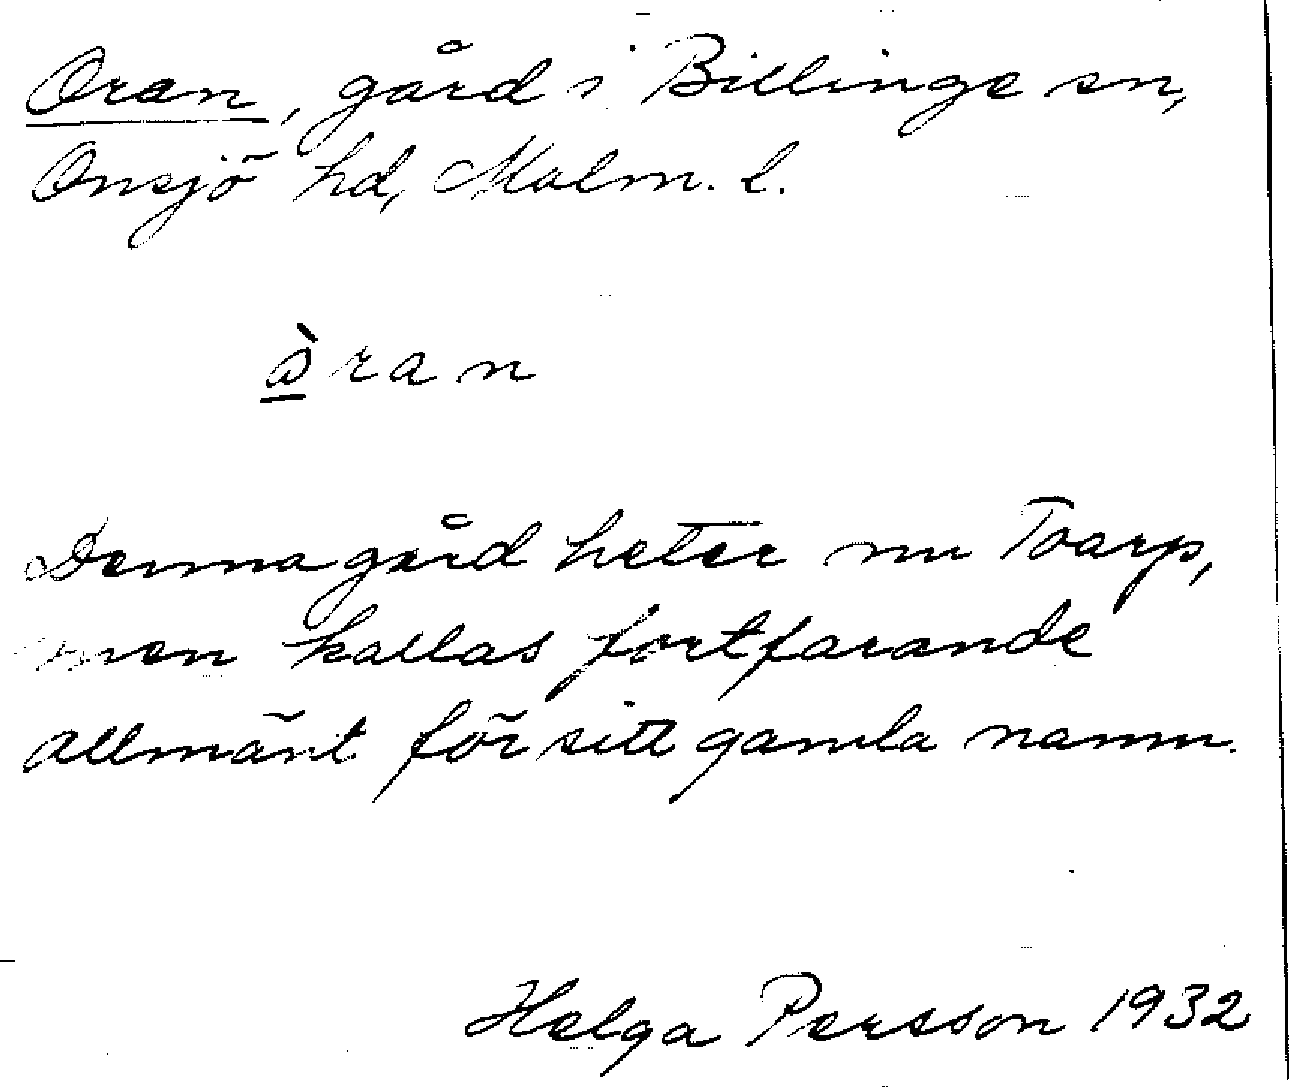 Oran, gård i Billinge sn,
Onsjö hd, Malm. l.
òran
Denna gård heter nu Toarp,
men kallas fortfarande
allmänt för sitt gamla namn.
Helga Persson 1932